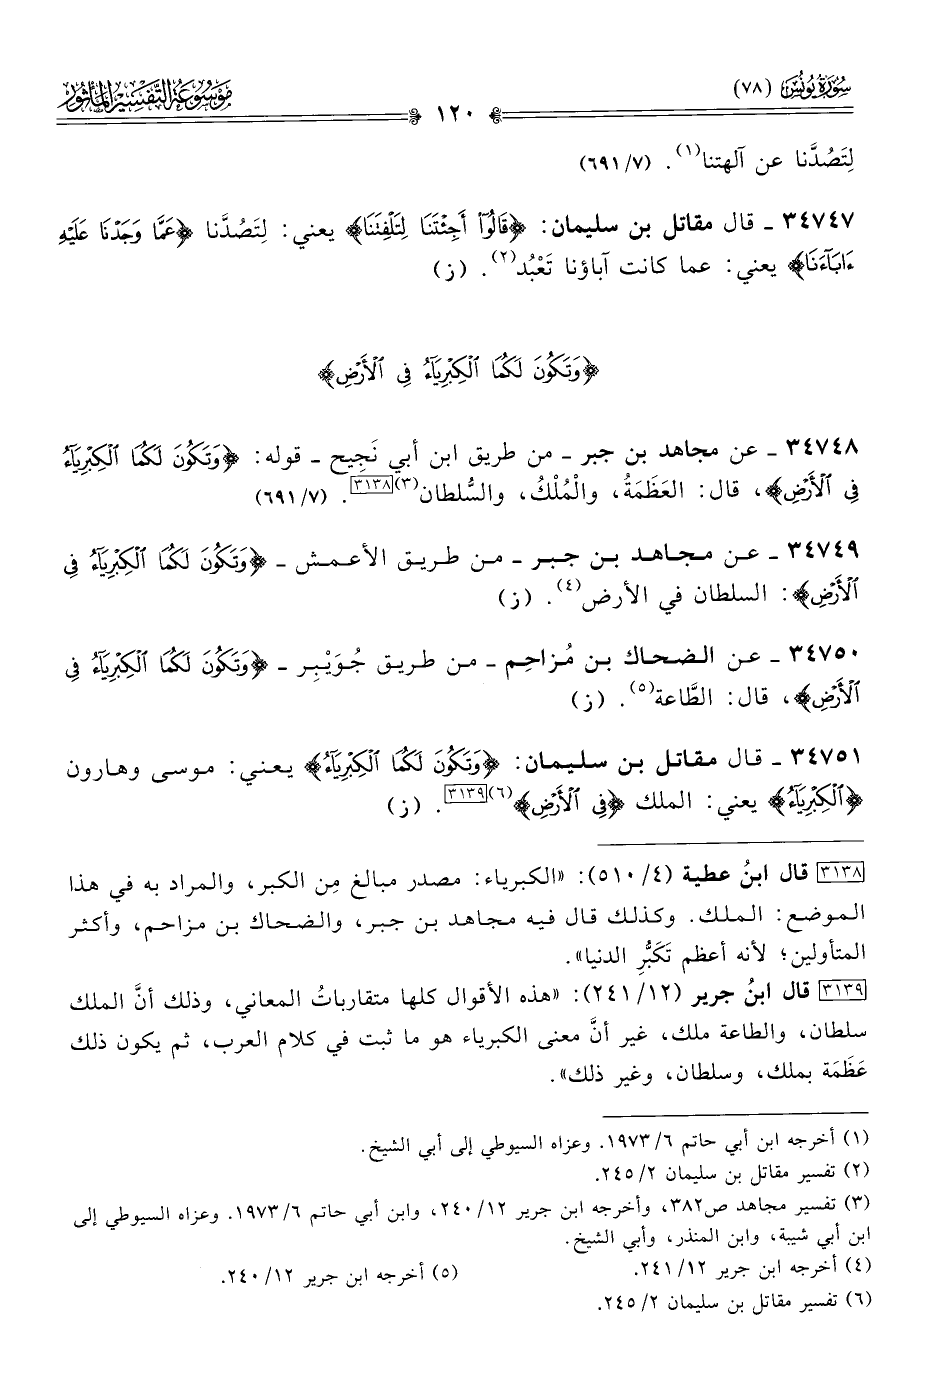 سُورَةُ يُونُسَ (٧٨)
١٢٠
مَوْسُوعَة التَّفْسِيرِ المَأْثُور
لِتَصُدَّنا عن آلهتنا(١). (٦٩١/٧)
٣٤٧٤٧ ـ قال مقاتل بن سليمان: ﴿قَالُوٓا۟ أَجِئْتَنَا لِتَلْفِتَنَا﴾ يعني: لِتَصُدَّنا ﴿عَمَّا وَجَدْنَا عَلَيْهِ
ءَابَآءَنَا﴾ يعني: عما كانت آباؤنا تَعْبُد(٢). (ز)
﴿وَتَكُونَ لَكُمَا ٱلْكِبْرِيَآءُ فِى ٱلْأَرْضِ﴾
٣٤٧٤٨ ـ عن مجاهد بن جبر ـ من طريق ابن أبي نَجيح ـ قوله: ﴿وَتَكُونَ لَكُمَا ٱلْكِبْرِيَآءُ
فِى ٱلْأَرْضِ﴾، قال: العَظَمَةُ، والْمُلْكُ، والسُّلطان(٣)[٣١٣٨]. (٦٩١/٧)
٣٤٧٤٩ ـ عن مجاهد بن جبر ـ من طريق الأعمش ـ ﴿وَتَكُونَ لَكُمَا ٱلْكِبْرِيَآءُ فِى
ٱلْأَرْضِ﴾: السلطان في الأرض(٤). (ز)
٣٤٧٥٠ ـ عن الضحاك بن مُزاحِم ـ من طريق جُوَيْبِر ـ ﴿وَتَكُونَ لَكُمَا ٱلْكِبْرِيَآءُ فِى
ٱلْأَرْضِ﴾، قال: الطَّاعة(٥). (ز)
٣٤٧٥١ ـ قال مقاتل بن سليمان: ﴿وَتَكُونَ لَكُمَا ٱلْكِبْرِيَآءُ﴾ يعني: موسى وهارون
﴿ٱلْكِبْرِيَآءُ﴾ يعني: الملك ﴿فِى ٱلْأَرْضِ﴾(٦)[٣١٣٩]. (ز)
[٣١٣٨] قال ابنُ عطية (٥١٠/٤): «الكبرياء: مصدر مبالغ مِن الكبر، والمراد به في هذا
الموضع: الملك. وكذلك قال فيه مجاهد بن جبر، والضحاك بن مزاحم، وأكثر
المتأولين؛ لأنه أعظم تَكَبُّرِ الدنيا».
[٣١٣٩] قال ابنُ جرير (٢٤١/١٢): «هذه الأقوال كلها متقارباتُ المعاني، وذلك أنَّ الملك
سلطان، والطاعة ملك، غير أنَّ معنى الكبرياء هو ما ثبت في كلام العرب، ثم يكون ذلك
عَظَمَة بملك، وسلطان، وغير ذلك».
(١) أخرجه ابن أبي حاتم ١٩٧٣/٦. وعزاه السيوطي إلى أبي الشيخ.
(٢) تفسير مقاتل بن سليمان ٢٤٥/٢.
(٣) تفسير مجاهد ص٣٨٢، وأخرجه ابن جرير ٢٤٠/١٢، وابن أبي حاتم ١٩٧٣/٦. وعزاه السيوطي إلى
ابن أبي شيبة، وابن المنذر، وأبي الشيخ.
(٤) أخرجه ابن جرير ٢٤١/١٢.
(٥) أخرجه ابن جرير ٢٤٠/١٢.
(٦) تفسير مقاتل بن سليمان ٢٤٥/٢.